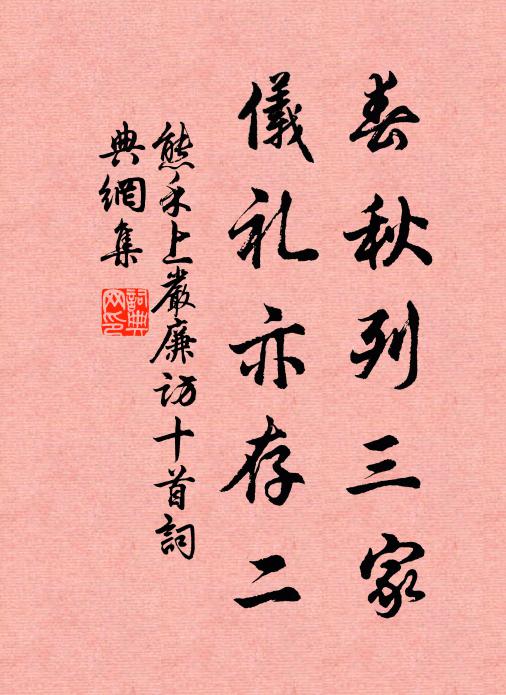 春秋列三家
儀礼亦存二
熊禾上嚴廉访十首詞
典網集
詞典
网印